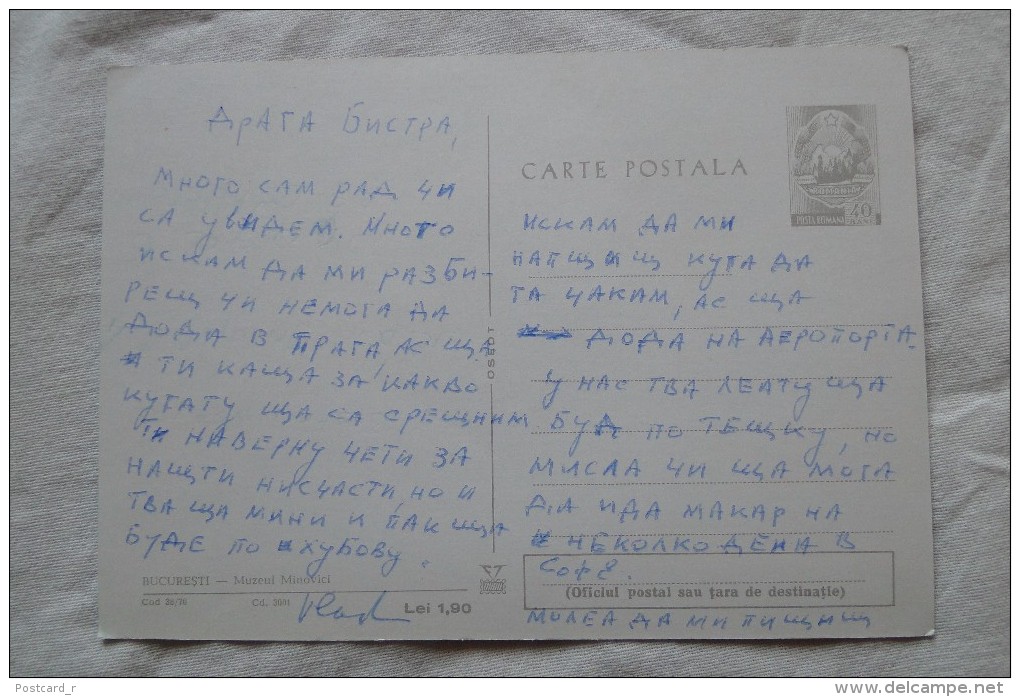 ДРАГА БИСТРА,
МНОГО САМ РАД ЧИ
СА УВИДЕМ. МНОГО
ИСКАМ ДА МИ РАЗБИ-
РЕЩ ЧИ НЕМОГА ДА
ДОДА В ПРАГА, АС ЩА
ТИ КАЩА ЗА КАКВО
КУГАТУ ЩА СА СРЕЩНИМ
ТИ НАВЕРНУ ЧЕТИ ЗА
НАЩТИ НИСЧАСТИ, НО И
ТВА ЩА МИНИ И ПАК ЩА
БУДЕ ПО ХУБОВУ.
BUCUREŞTI — Muzeul Minovici
Cod 38/76 Cd. 3091
Vlad
Lei 1,90
OSEDT
CARTE POSTALA
POSTA ROMANA 40
ИСКАМ ДА МИ
НАПЩИЩ КУГА ДА
ТА ЧАКАМ, АС ЩА
ДОДА НА АЕРОПОРТА.
У НАС ТВА ЛЕАТУ ЩА
БУДЕ ПО ТЕЩКУ, НО
МИСЛА ЧИ ЩА МОГА
ДА ИДА МАКАР НА
НЕКОЛКО ДЕНА В
СОФЕ.
(Oficiul postal sau ţara de destinaţie)
МОЛЕА ДА МИ ПИЩИЩ
Postcard_r
www.delcampe.net